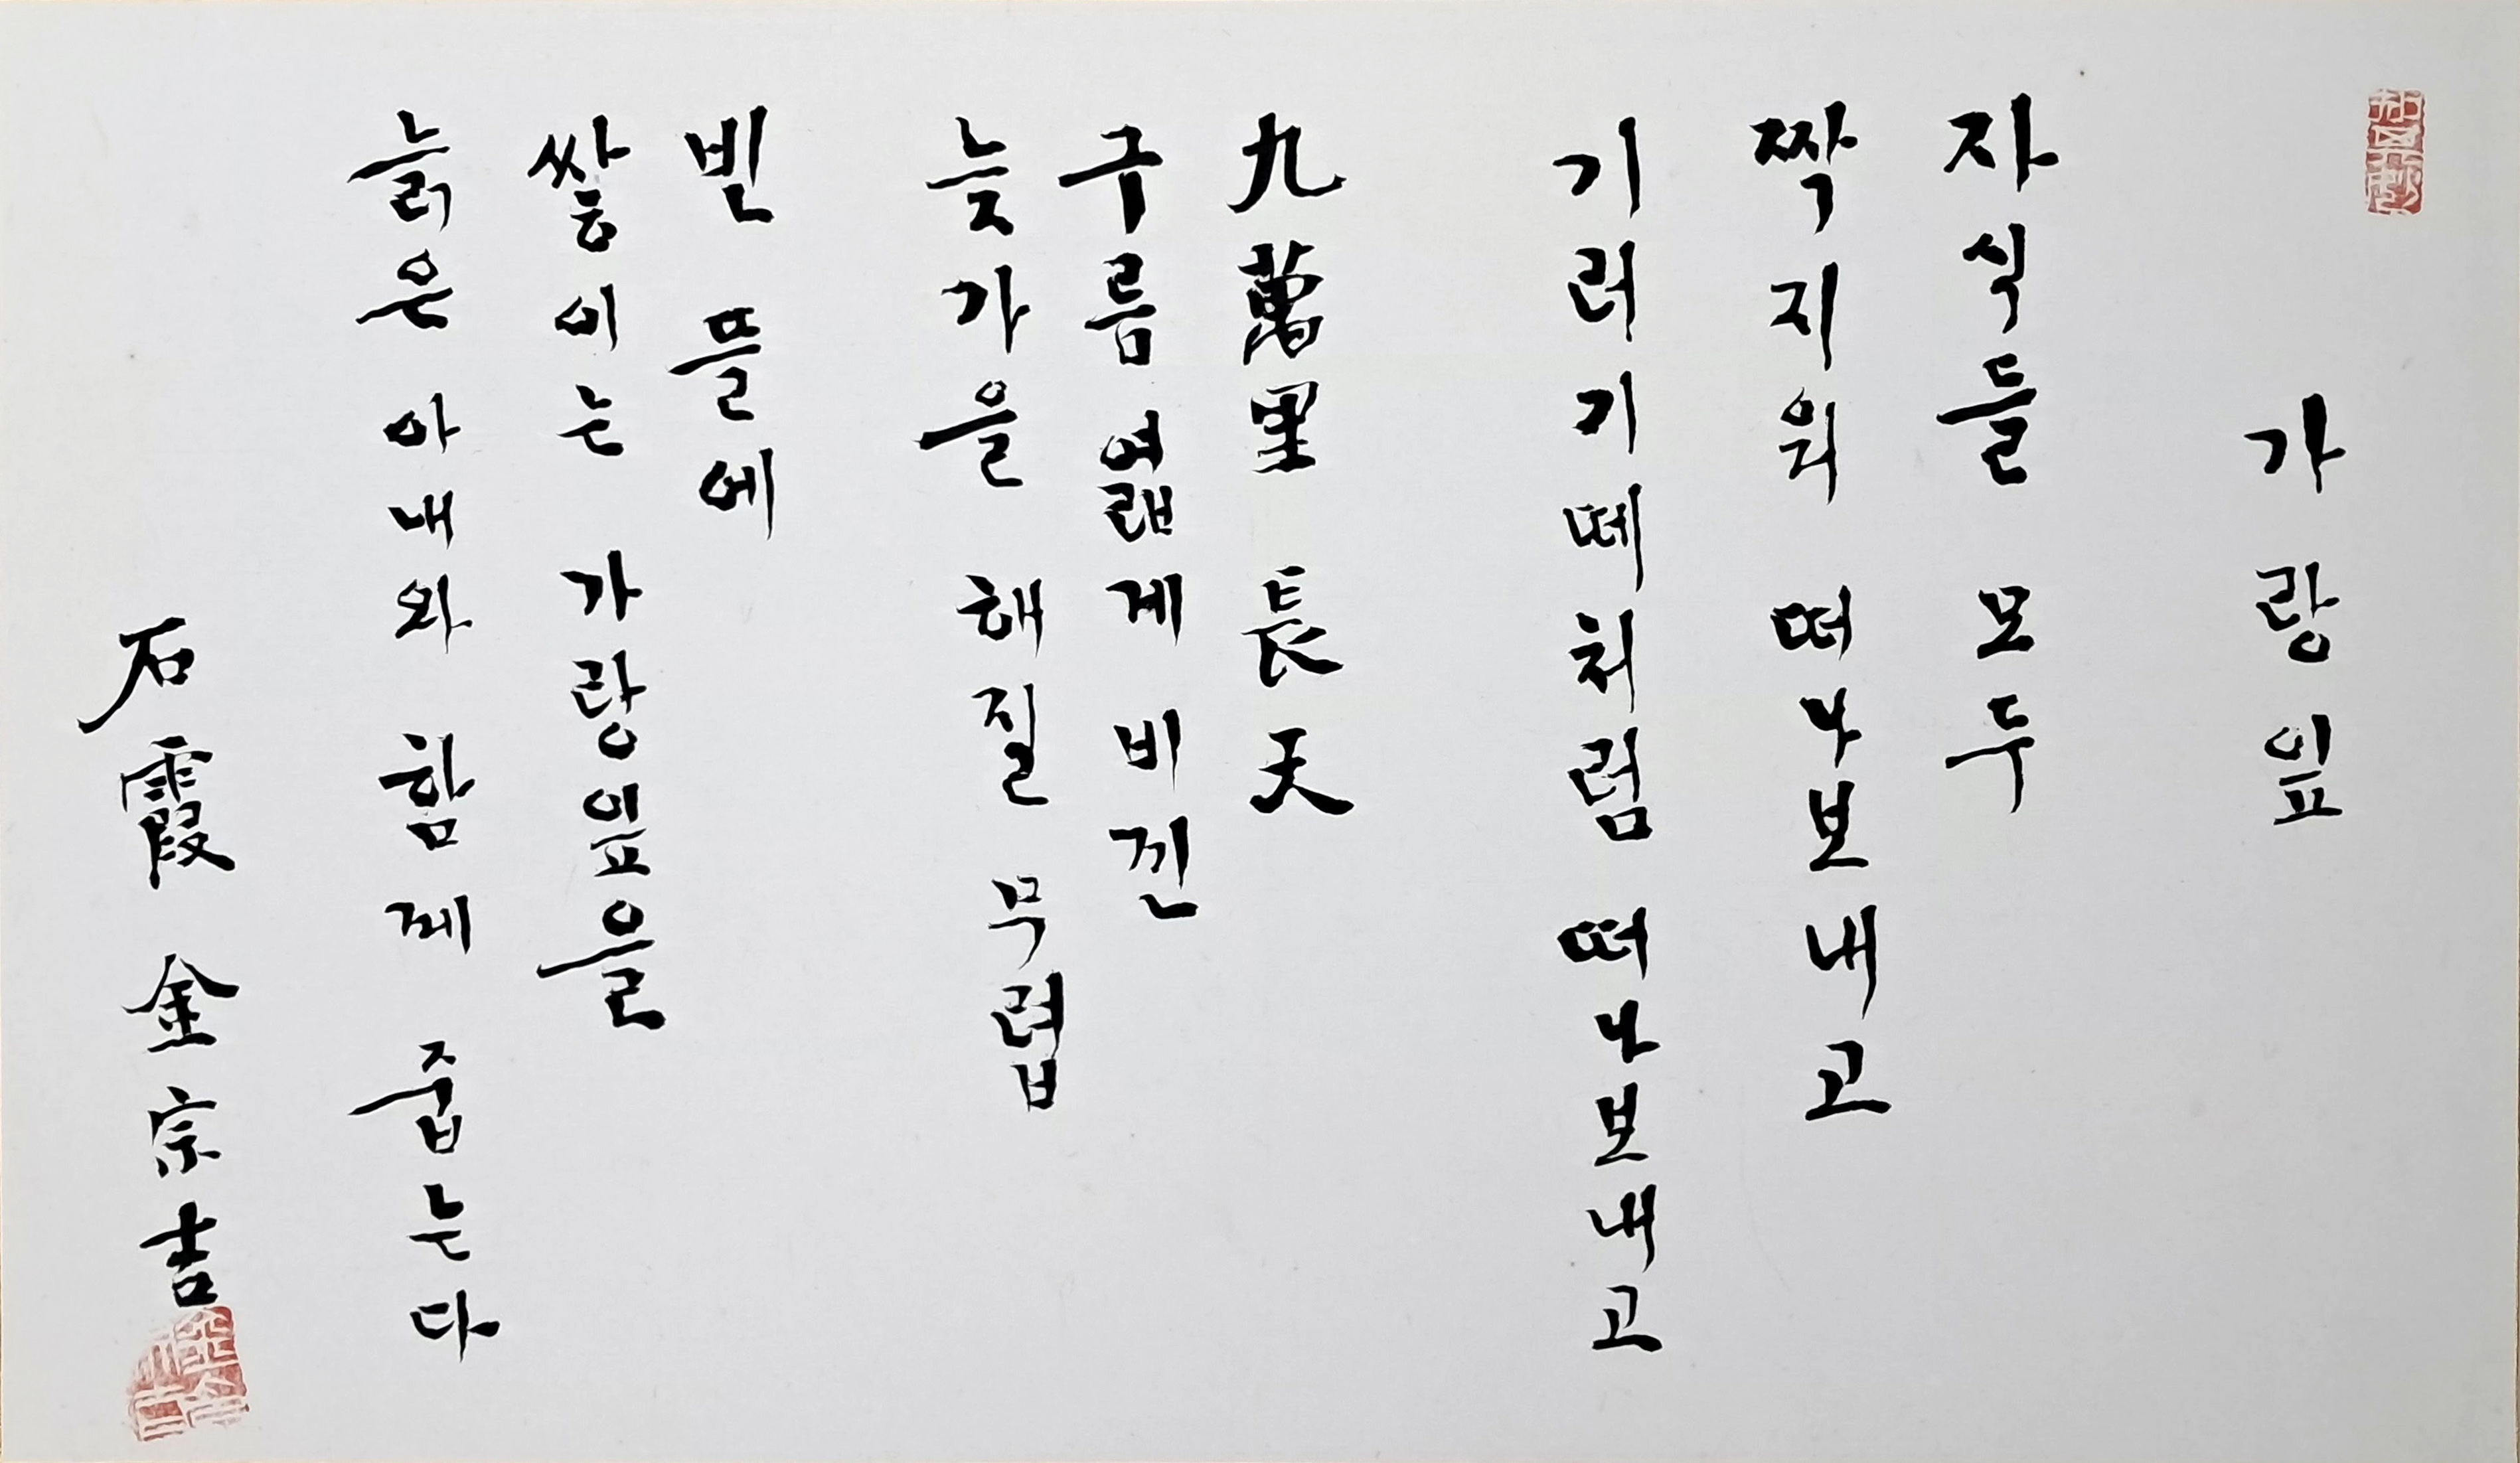 가랑잎
자식들 모두
짝지워 떠나보내고
기러기떼처럼 떠나보내고
九萬里 長天
구름 엷게 비낀
늦가을 해질 무렵
빈 뜰에
쌓이는 가랑잎을
늙은 아내와 함께 줍는다
石霞 金宗吉